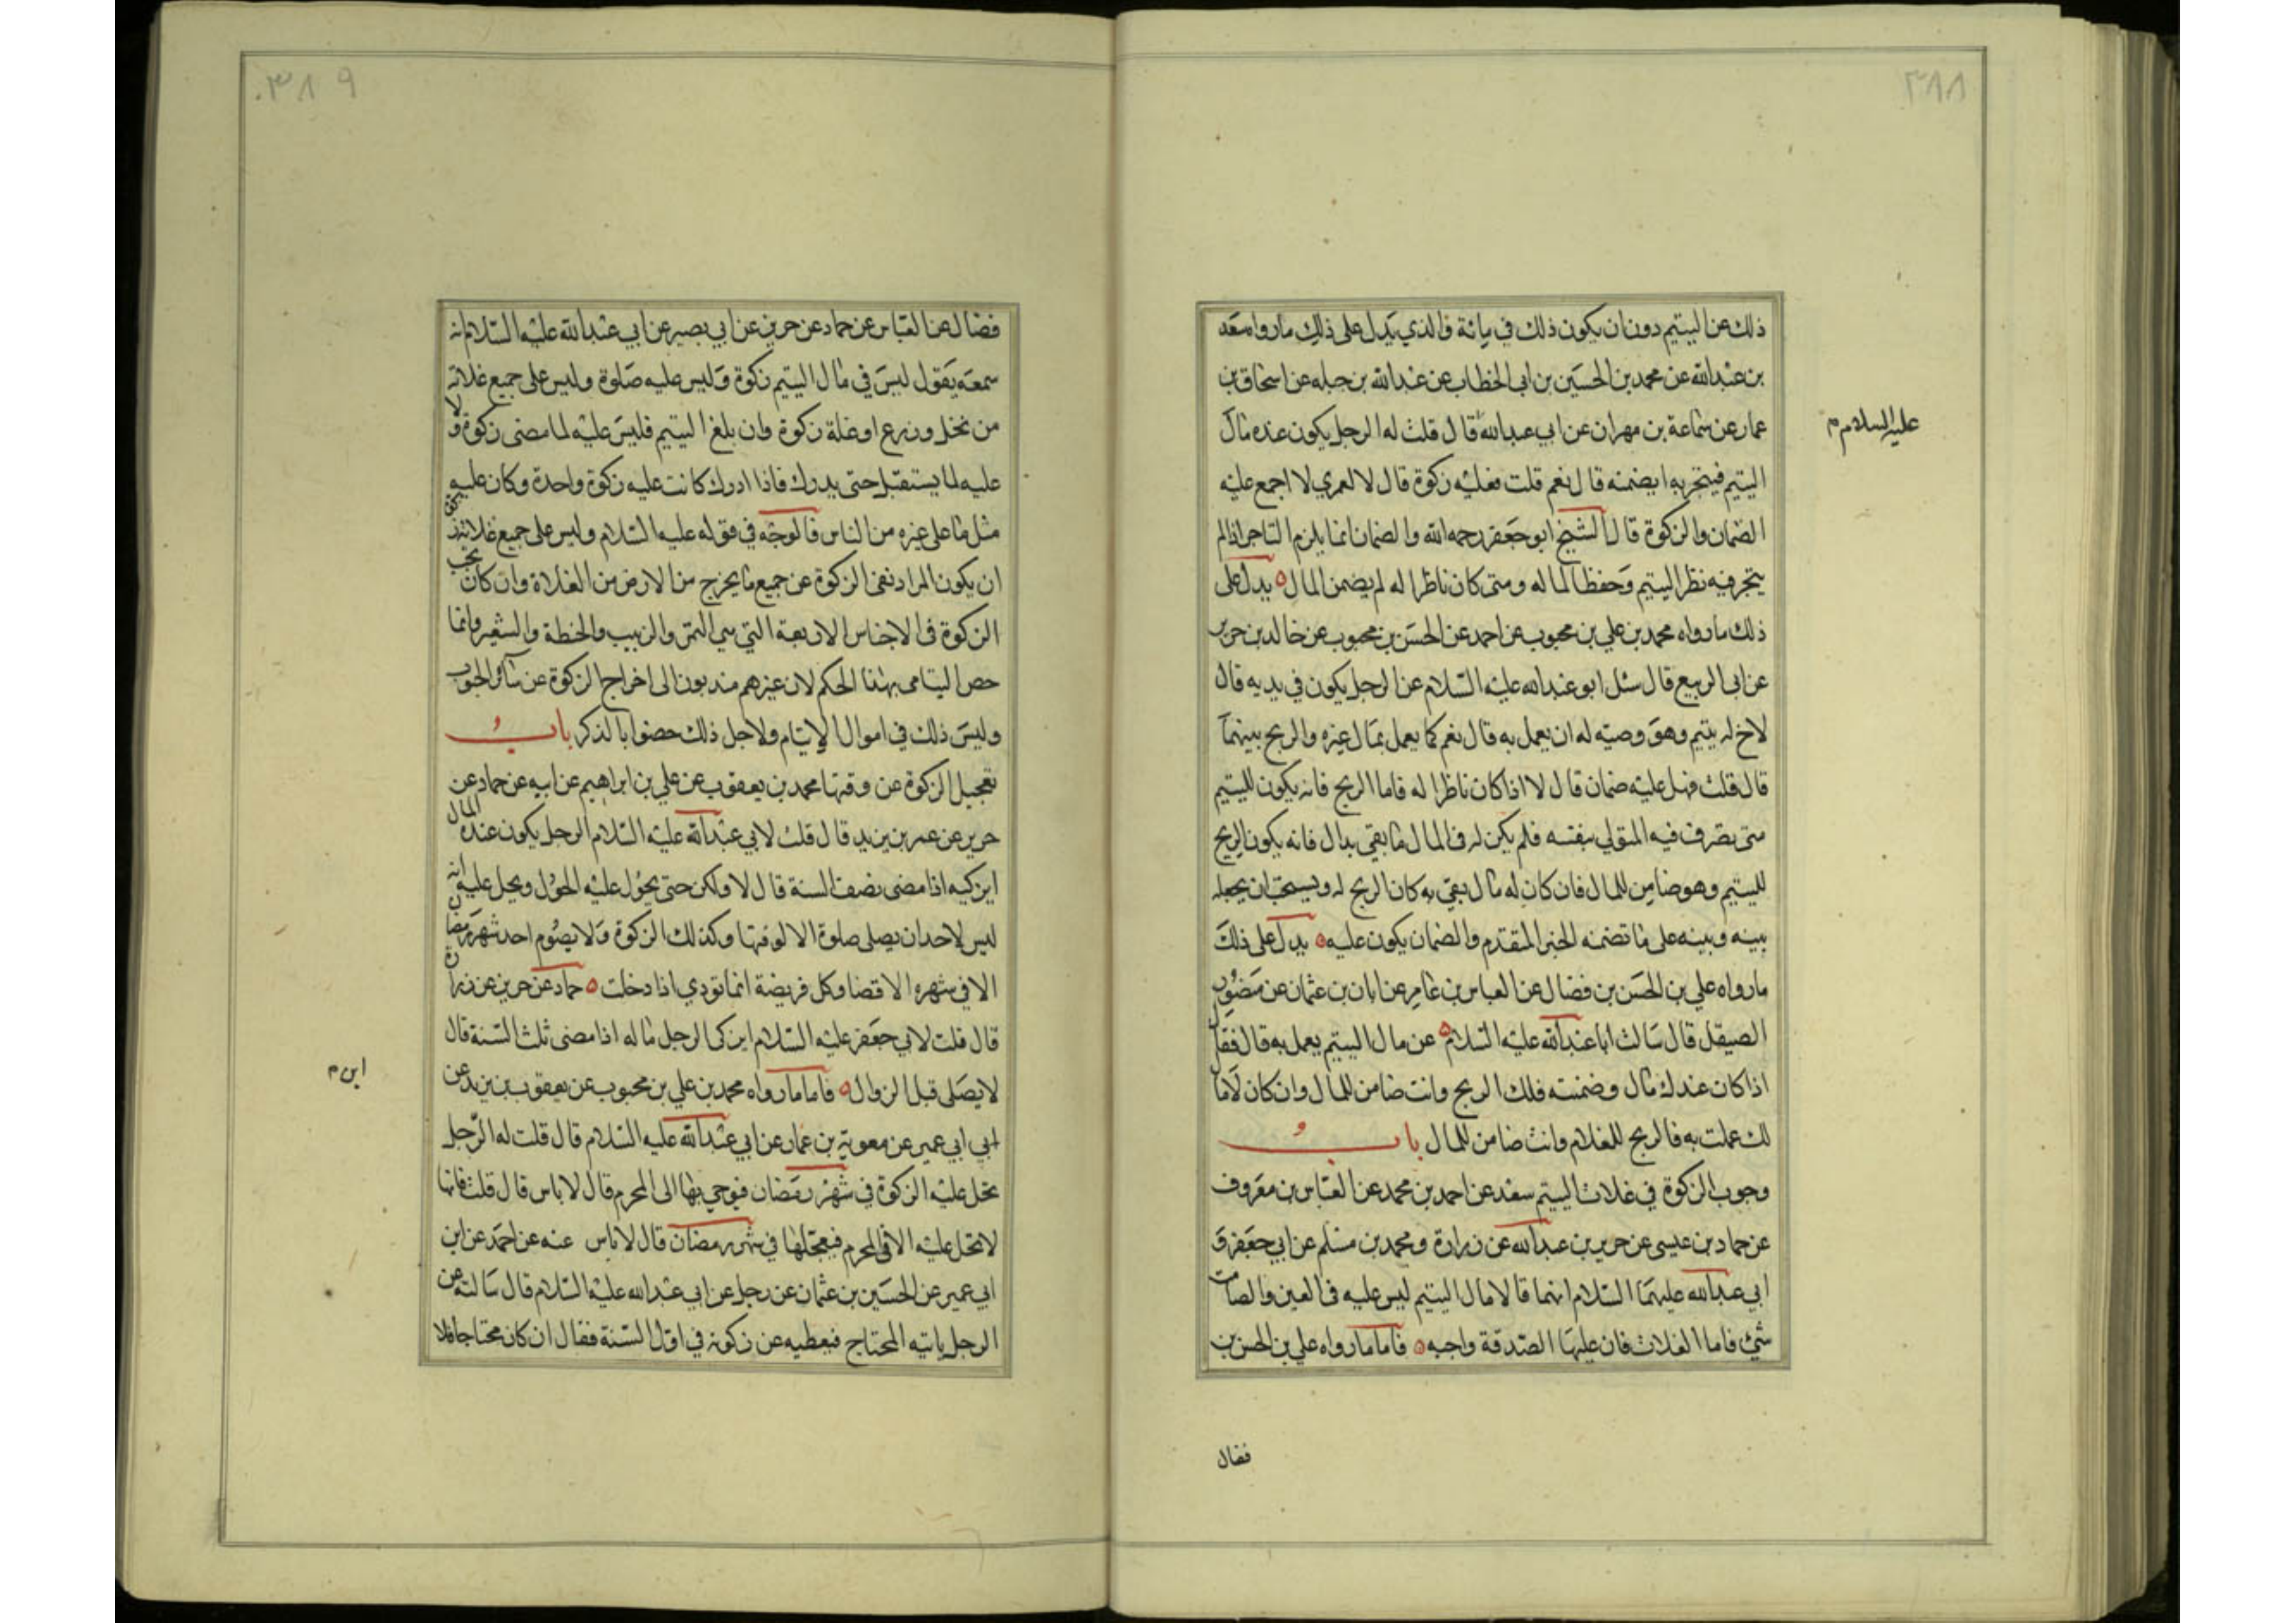 ٣٨٨
ذلك عن اليتيم دون ان يكون ذلك في مائة فالذي يدل على ذلك مارواه سعد
بن عبدالله عن محمد بن الحسين بن ابى الخطاب عن عبدالله بن جبله عن اسحاق بن
عمار عن سماعة بن مهران عن ابي عبدالله قال قلت له الرجل يكون عنده مال
عليه السلام م
اليتيم فيتجر به ايضمنه قال نعم قلت فعليه زكوة قال لا لعمري لا اجمع عليه
الضمان والزكوة قال الشيخ ابو جعفر رحمه الله والضمان انما يلزم التاجر اذا لم
يتجر فيه نظرا لليتيم وحفظا لماله ومتى كان ناظرا له لم يضمن المال ه يدل على
ذلك مارواه محمد بن علي بن محبوب عن احمد عن الحسن بن محبوب عن خالد بن جرير
عن ابى الربيع قال سئل ابو عبدالله عليه السلام عن الرجل يكون في يديه قال
لاخ له يتيم وهو وصيه له ان يعمل به قال نعم كما يعمل بمال غيره والربح بينهما
قال قلت فهل عليه ضمان قال لا اذا كان ناظرا له فاما الربح فانه يكون لليتيم
متى تصرف فيه المتولي بنفسه فلم يكن له فى المال ما بقي بدال فانه يكون الربح
لليتيم وهو ضامن للمال فان كان له مال بقي به كان الربح له ويستحب ان يجعله
بينه وبينه على ما تضمنه الخبر المتقدم والضمان يكون عليه ه يدل على ذلك
مارواه علي بن الحسن بن فضال عن العباس بن عامر عن ابان بن عثمان عن منصور
الصيقل قال سالت ابا عبدالله عليه السلام ه عن مال اليتيم يعمل به قال فقال
اذا كان عندك مال وضمنته فلك الربح وانت ضامن للمال وان كان لا مال
لك عملت به فالربح للغلام وانت ضامن للمال باب
وجوب الزكوة في غلات اليتيم سعد عن احمد بن محمد عن العباس بن معروف
عن حماد بن عيسى عن حريز بن عبدالله عن زرارة ومحمد بن مسلم عن ابي جعفر و
ابي عبدالله عليهما السلام انهما قالا مال اليتيم ليس عليه فى العين والصامت
شئ فاما الغلات فان عليها الصدقة واجبه ه فاما مارواه علي بن الحسن بن
فقال
٣٨٩
فضال عن العباس عن حماد عن حريز عن ابي بصير عن ابي عبدالله عليه السلام انه
سمعه يقول ليس في مال اليتيم زكوة وليس عليه صلوة وليس على جميع غلاته
من نخل وزرع او غلة زكوة وان بلغ اليتيم فليس عليه لما مضى زكوة ولا
عليه لما يستقبل حتى يدرك فاذا ادرك كانت عليه زكوة واحدة وكان عليه
مثل ما على غيره من الناس فالوجه في قوله عليه السلام وليس على جميع غلاته زكوة
ان يكون المراد نفى الزكوة عن جميع ما يخرج من الارض من الغلاة وان كان يجب
الزكوة فى الاجناس الاربعة التي هي التمر والزبيب والحنطة والشعير وانما
خص اليتامى بهذا الحكم لان غيرهم مندبون الى اخراج الزكوة عن سائر الحبوب
وليس ذلك في اموال الايتام ولاجل ذلك خصوا بالذكر باب
تعجيل الزكوة عن وقتها محمد بن يعقوب عن علي بن ابراهيم عن ابيه عن حماد عن
حريز عن عمر بن يزيد قال قلت لابي عبدالله عليه السلام الرجل يكون عنده المال
ايزكيه اذا مضى نصف السنة قال لا ولكن حتى يحول عليه الحول ويحل عليه انه
ليس لاحد ان يصلى صلوة الا لوقتها وكذلك الزكوة ولا يصوم احد شهر رمضان
الا في شهره الا قضا وكل فريضة انما تودي اذا دخلت ه حماد عن حريز عن زرارة
قال قلت لابي جعفر عليه السلام ايزكى الرجل ماله اذا مضى ثلث السنة قال
لا يصلى قبل الزوال ه فاما مارواه محمد بن علي بن محبوب عن يعقوب بن يزيد عن
ابن م
ابي ابي عمير عن معوية بن عمار عن ابي عبدالله عليه السلام قال قلت له الرجل
تحل عليه الزكوة في شهر رمضان فيوخرها الى المحرم قال لا باس قال قلت فانها
لا تحل عليه الا فى المحرم فيعجلها في شهر رمضان قال لا باس عنه عن احمد عن ابن
ابي عمير عن الحسين بن عثمان عن رجل عن ابي عبدالله عليه السلام قال سالته عن
الرجل ياتيه المحتاج فيعطيه عن زكوته في اول السنة فقال ان كان محتاجا فلا